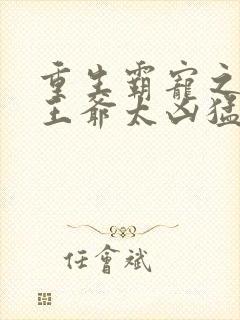 重生霸寵之
王爺太凶猛
任會斌